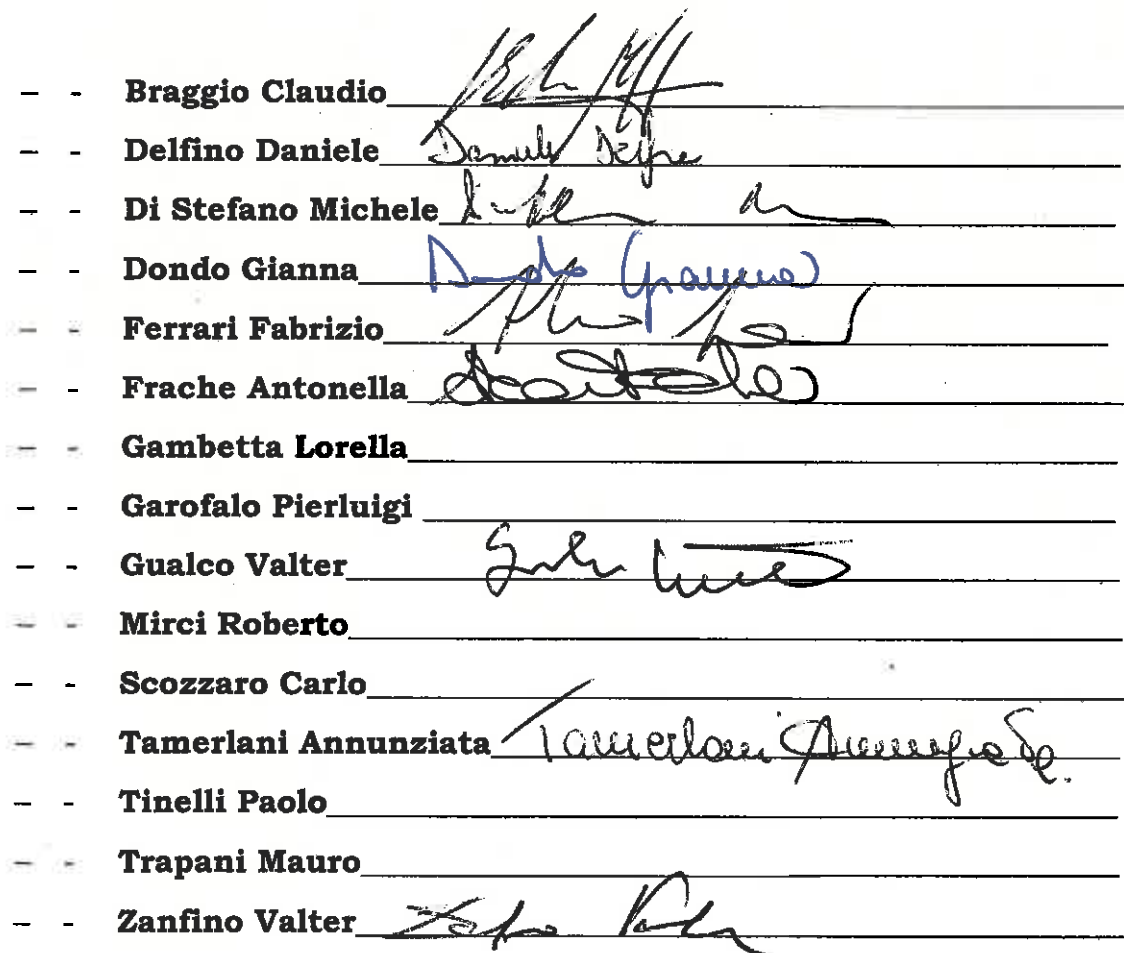 - - Braggio Claudio
- - Delfino Daniele Daniele Delfino
- - Di Stefano Michele
- - Dondo Gianna Dondo Gianna
- - Ferrari Fabrizio
- - Frache Antonella
- - Gambetta Lorella
- - Garofalo Pierluigi
- - Gualco Valter
- - Mirci Roberto
- - Scozzaro Carlo
- - Tamerlani Annunziata Tamerlani Annunziata
- - Tinelli Paolo
- - Trapani Mauro
- - Zanfino Valter